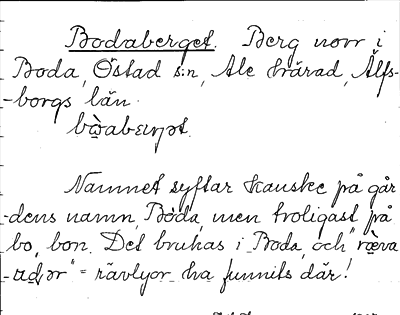 Bodaberget. Berg norr i
Boda, Östad s:n, Ale härad, Älfs-
-borgs län.
Namnet syftar kanske på går
-dens namn, Boda, men troligast på
bo, bon. Det brukas i Boda, och "
= rävlyor ha funnits där!